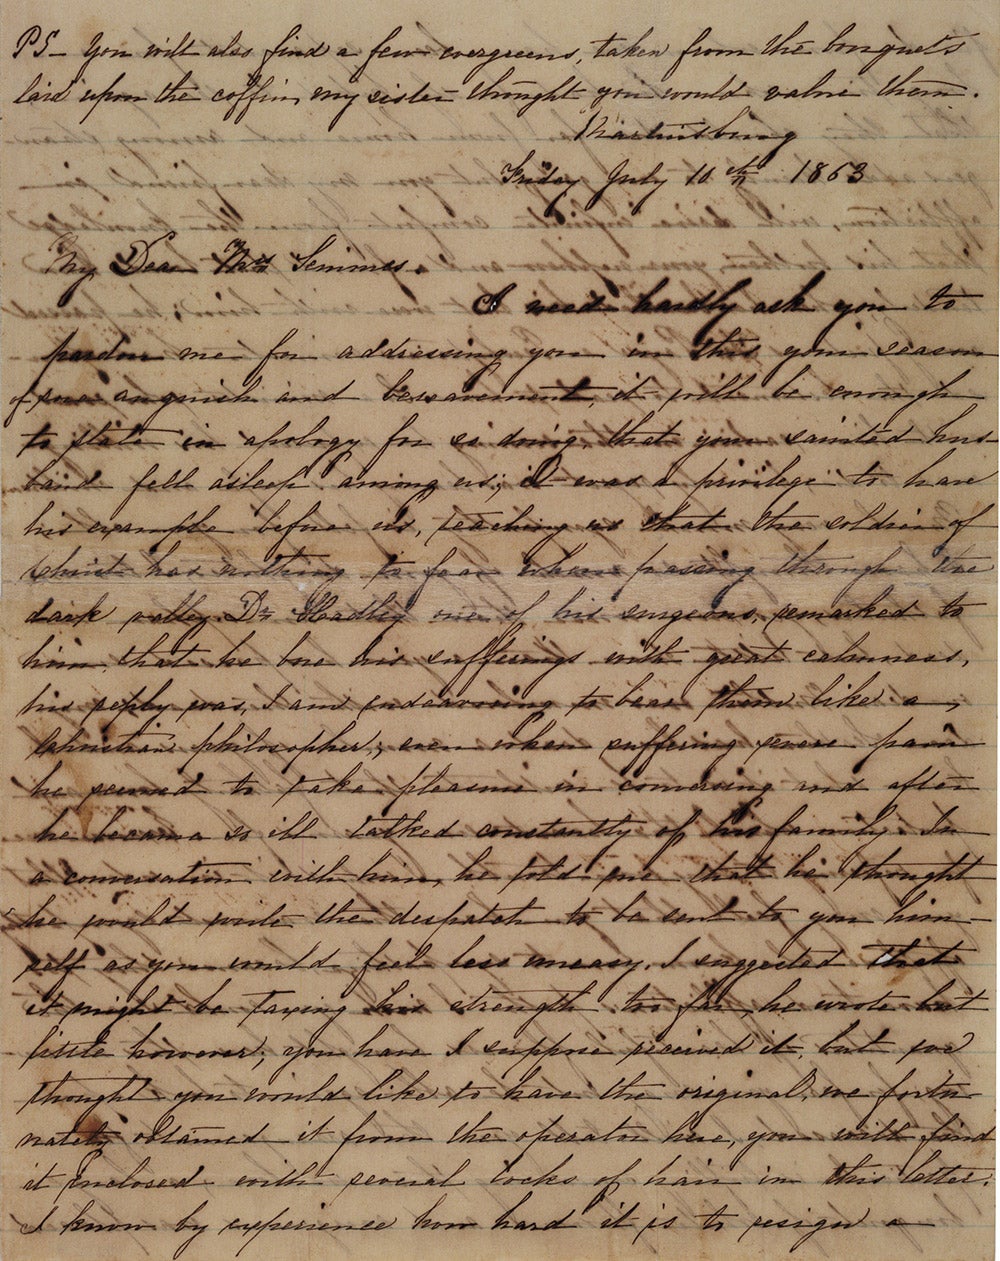 PS – You will also find a few evergreens, taken from the bouquets
laid upon the coffin, my sister thought you would value them.
Martinsburg
Friday July 10th 1863
My Dear Mrs Semmes.
I need hardly ask you to
pardon me for addressing you in this your season
of sore anguish and bereavement, it will be enough
to state in apology for so doing, that your sainted hus-
band fell asleep among us; it was a privilege to have
his example before us, teaching us that the soldier of
Christ has nothing to fear when passing through the
dark valley. Dr Hadley one of his surgeons, remarked to
him, that he bore his sufferings with great calmness,
his reply was, I am endeavoring to bear them like a
Christian philosopher; even when suffering severe pain
he seemed to take pleasure in conversing and after
he became so ill talked constantly of his family. In
a conversation with him, he told me that he thought
he would write the despatch to be sent to you him-
self as you would feel less uneasy. I suggested that
it might be taxing his strength too far, he wrote but
little however; you have I suppose received it, but we
thought you would like to have the original, we fortu-
nately obtained it from the operator here, you will find
it enclosed with several locks of hair in this letter.
I know by experience how hard it is to resign a